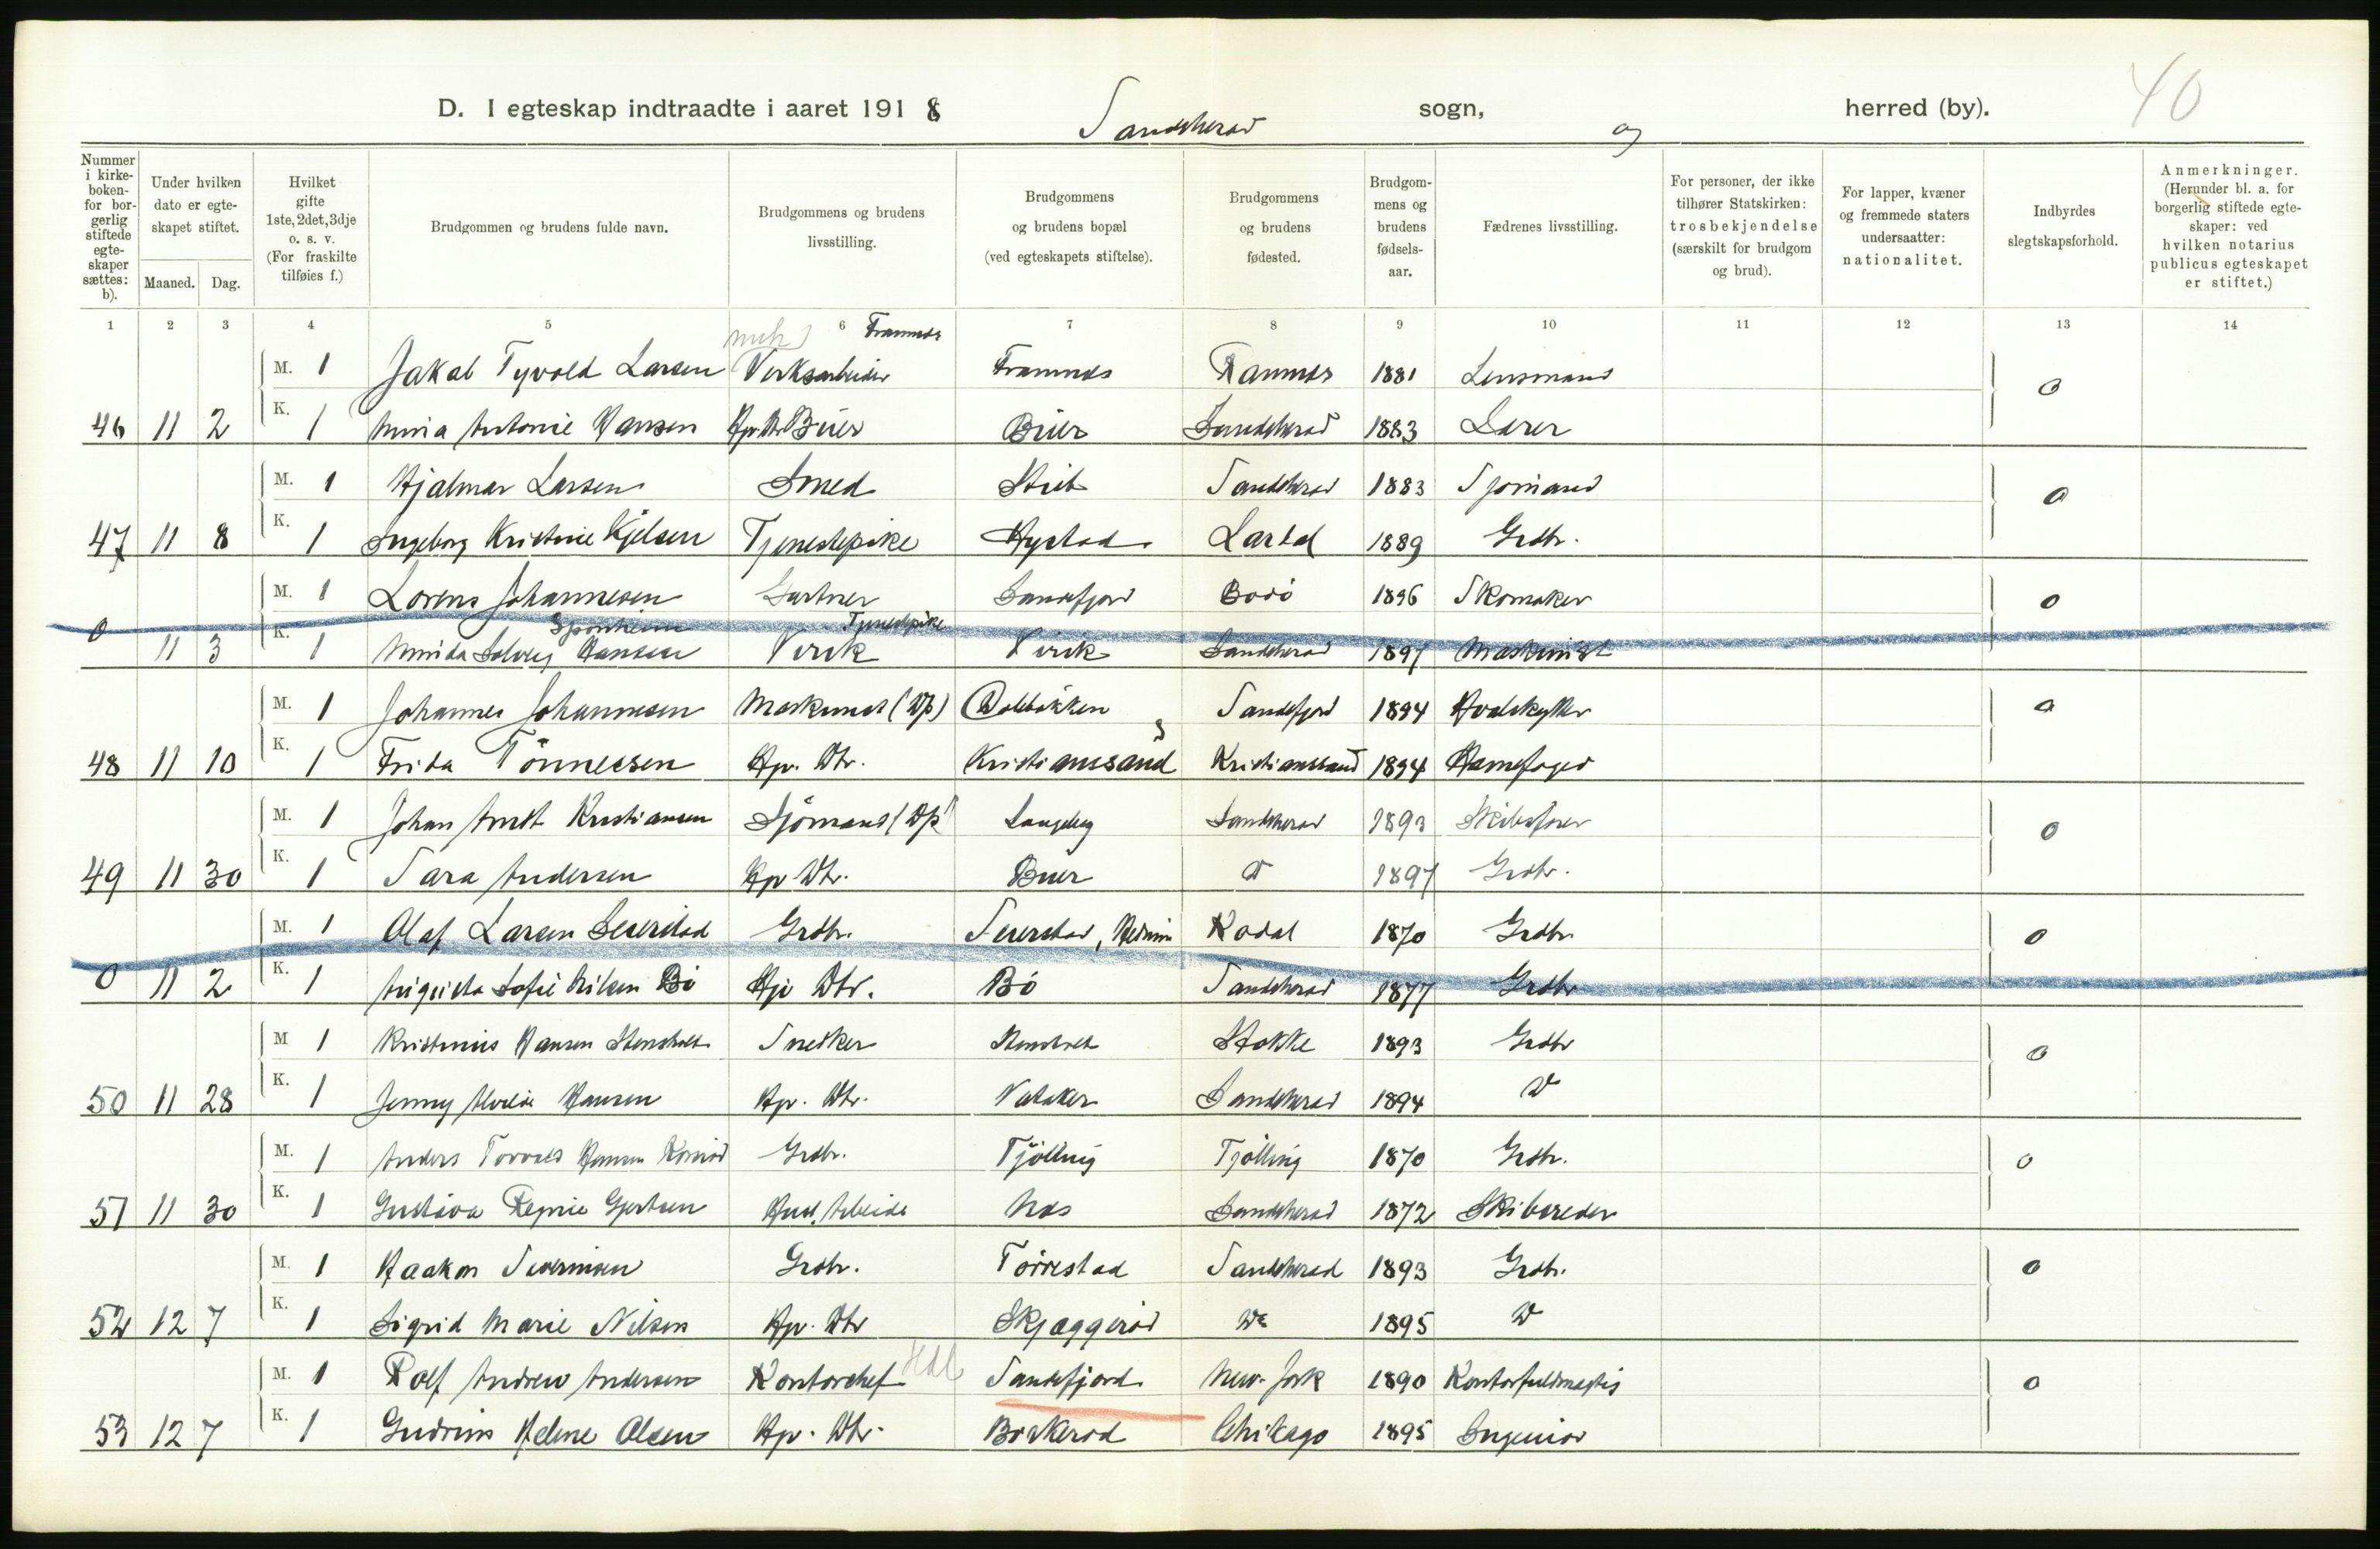 40
D. I egteskap indtraadte i aaret 1918 Sandeherad sogn, og herred (by).
Nummer i kirke-boken-for bor-gerlig stiftede egte-skaper sættes: b). Under hvilken dato er egte-skapet stiftet. Maaned. Dag. Hvilket gifte 1ste, 2det, 3dje o. s. v. (For fraskilte tilføies f.) Brudgommen og brudens fulde navn. Brudgommens og brudens livsstilling. Brudgommens og brudens bopæl (ved egteskapets stiftelse). Brudgommens og brudens fødested. Brudgom-mens og brudens fødsels-aar. Fædrenes livsstilling. For personer, der ikke tilhører Statskirken: trosbekjendelse (særskilt for brudgom og brud). For lapper, kvæner og fremmede staters undersaatter: nationalitet. Indbyrdes slegtskapsforhold. Anmerkninger. (Herunder bl. a. for borgerlig stiftede egte-skaper: ved hvilken notarius publicus egteskapet er stiftet.)
1 2 3 4 5 6 7 8 9 10 11 12 13 14
Framnes
M. 1 Jakob Tyvold Larsen Verksarbeider Framnes Ramnes 1881 Lensmand 0
46 11 2 K. 1 Antonie Hansen Buer Buer Sandeherad 1883 Lærer
M. 1 Hjalmar Larsen Smed Stub Sandeherad 1883 Sjømand 0
47 11 8 K. 1 Ingeborg Kristine Kjelsen Tjenestepike Hystad Lardal 1889 Grdbr.
M. 1 Lorens Johannesen Gartner Sandefjord Bodö 1896 Skomaker 0
Tjenestepike
0 11 3 K. 1 Solveig Hansen Virik Virik Sandeherad 1897 Maskinist
M. 1 Johannes Johannesen Maskinist Sandefjord 1894 Hvalskytter 0
48 11 10 K. 1 Frida Tönnessen Hp. Dtr. Kristianssand Kristianssand 1894 Havnefoged
M. 1 Johan Arndt Kristiansen Sjömand Langeby Sandeherad 1893 Skibsfører 0
49 11 30 K. 1 Sara Andersen Hp Dtr. Buer D 1897 Grdbr.
M. 1 Olaf Larsen Seierstad Grdbr. Seierstad, Hedrum Kodal 1870 Grdbr. 0
0 11 2 K. 1 Augusta Sofie Nilsen Bö Hp Dtr. Bö Sandeherad 1877 Grdbr
M 1 Kristinus Hansen Stensholt Snekker Stensholt Stokke 1893 Grdbr 0
50 11 28 K. 1 Jenny Alvilde Hansen Hp. Dtr. Vataker Sandeherad 1894 D
M. 1 Anders Torvald Hansen Grdbr. Tjölling Tjölling 1870 Grdbr. 0
51 11 30 K. 1 Gustava Regine Gjertsen Hus. Arbeide Nes Sandeherad 1872 Skibsreder
M. 1 Haakon Severinsen Grdbr. Torrestad Sandeherad 1893 Grdbr. 0
52 12 7 K. 1 Sigrid Marie Nilsen Hp. Dtr Skjæggeröd Do 1895 D
M. 1 Rolf Andrew Andersen Kontorchef Sandefjord New-York 1890 Kontorfuldmægtig 0
53 12 7 K. 1 Gudrun Helene Olsen Hp. Dtr. Chikago 1895 Ingeniør